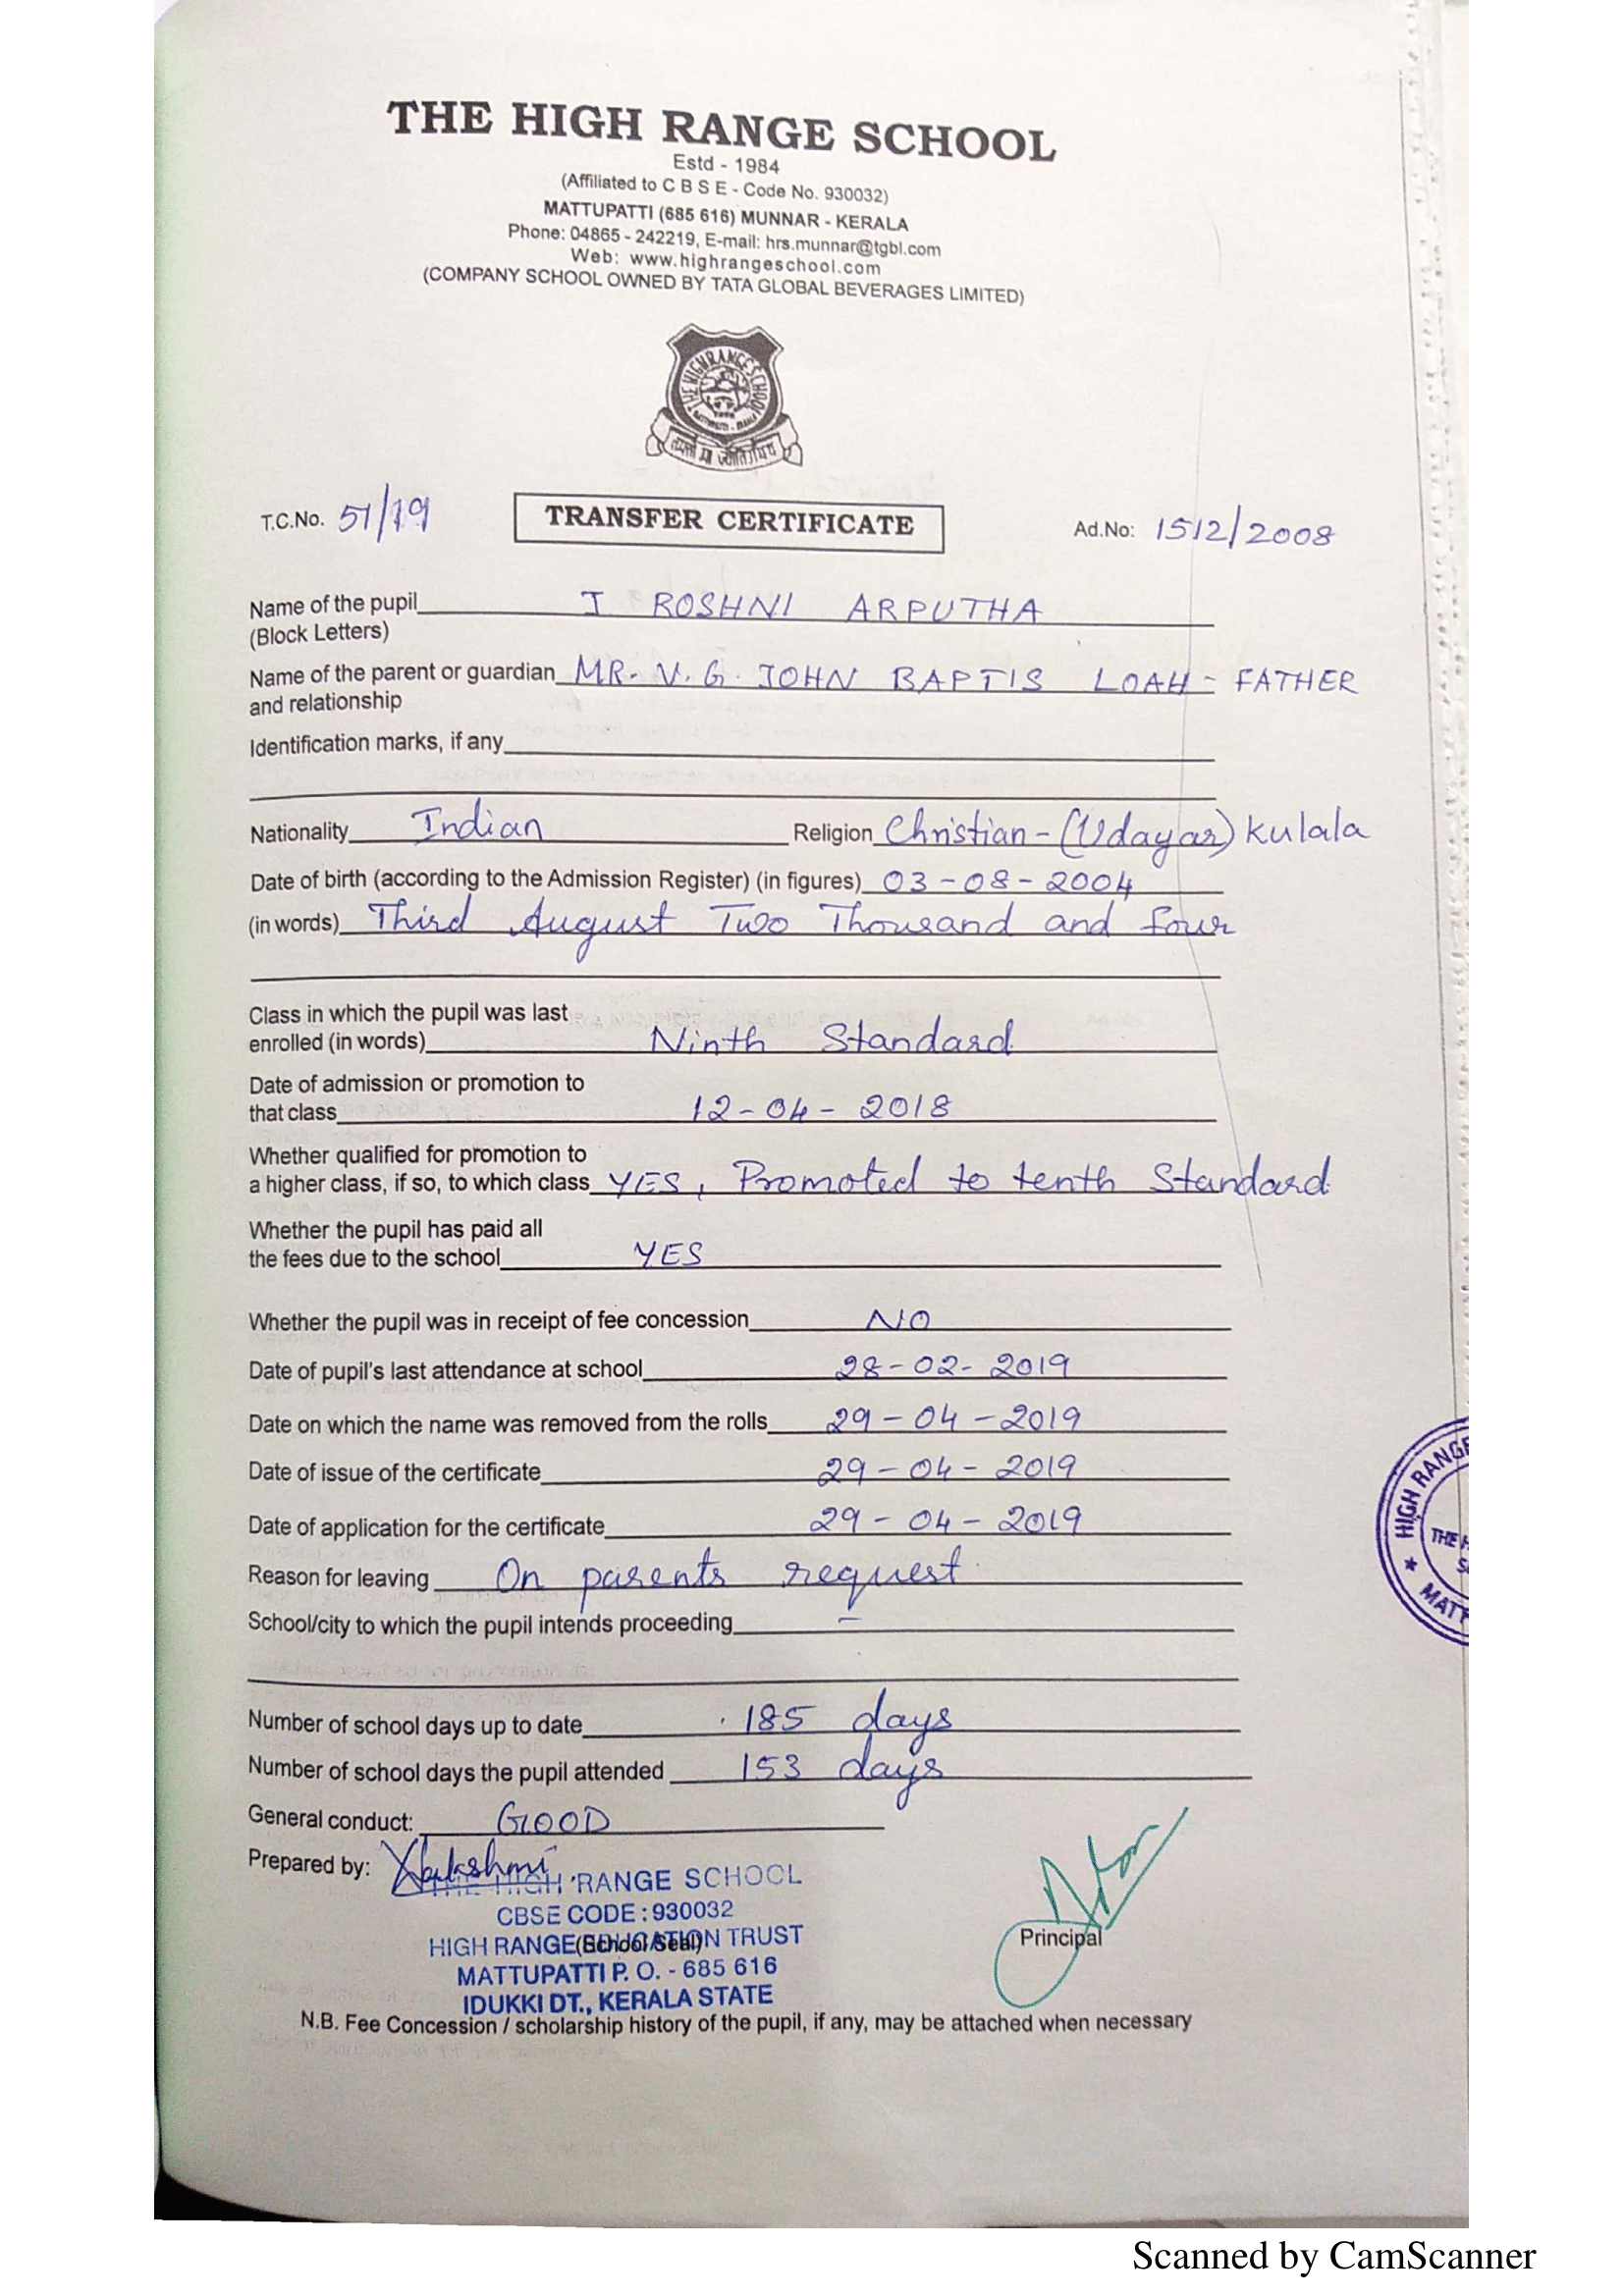 THE HIGH RANGE SCHOOL
Estd - 1984
(Affiliated to C B S E - Code No. 930032)
MATTUPATTI (685 616) MUNNAR - KERALA
Phone: 04865 - 242219, E-mail: hrs.munnar@tgbl.com
Web: www.highrangeschool.com
(COMPANY SCHOOL OWNED BY TATA GLOBAL BEVERAGES LIMITED)
THE HIGH RANGE SCHOOL
तमसो मा ज्योतिर्गमय
T.C.No. 51/19 TRANSFER CERTIFICATE Ad.No: 1512/2008
Name of the pupil J ROSHNI ARPUTHA
(Block Letters)
Name of the parent or guardian MR. V. G. JOHN BAPTIS LOAH - FATHER
and relationship
Identification marks, if any
Nationality Indian Religion Christian - (Udayar) Kulala
Date of birth (according to the Admission Register) (in figures) 03 - 08 - 2004
(in words) Third August Two Thousand and four
Class in which the pupil was last
enrolled (in words) Ninth Standard
Date of admission or promotion to
that class 12 - 04 - 2018
Whether qualified for promotion to
a higher class, if so, to which class YES, Promoted to tenth Standard
Whether the pupil has paid all
the fees due to the school YES
Whether the pupil was in receipt of fee concession NO
Date of pupil's last attendance at school 28 - 02 - 2019
Date on which the name was removed from the rolls 29 - 04 - 2019
Date of issue of the certificate 29 - 04 - 2019
Date of application for the certificate 29 - 04 - 2019
Reason for leaving On parents request
School/city to which the pupil intends proceeding -
Number of school days up to date 185 days
Number of school days the pupil attended 153 days
General conduct: GOOD
Prepared by:
THE HIGH RANGE SCHOOL
CBSE CODE : 930032
HIGH RANGE EDUCATION TRUST
(School Seal)
MATTUPATTI P. O. - 685 616
IDUKKI DT., KERALA STATE
Principal
N.B. Fee Concession / scholarship history of the pupil, if any, may be attached when necessary
HIGH RANGE
THE H
MATT
Scanned by CamScanner